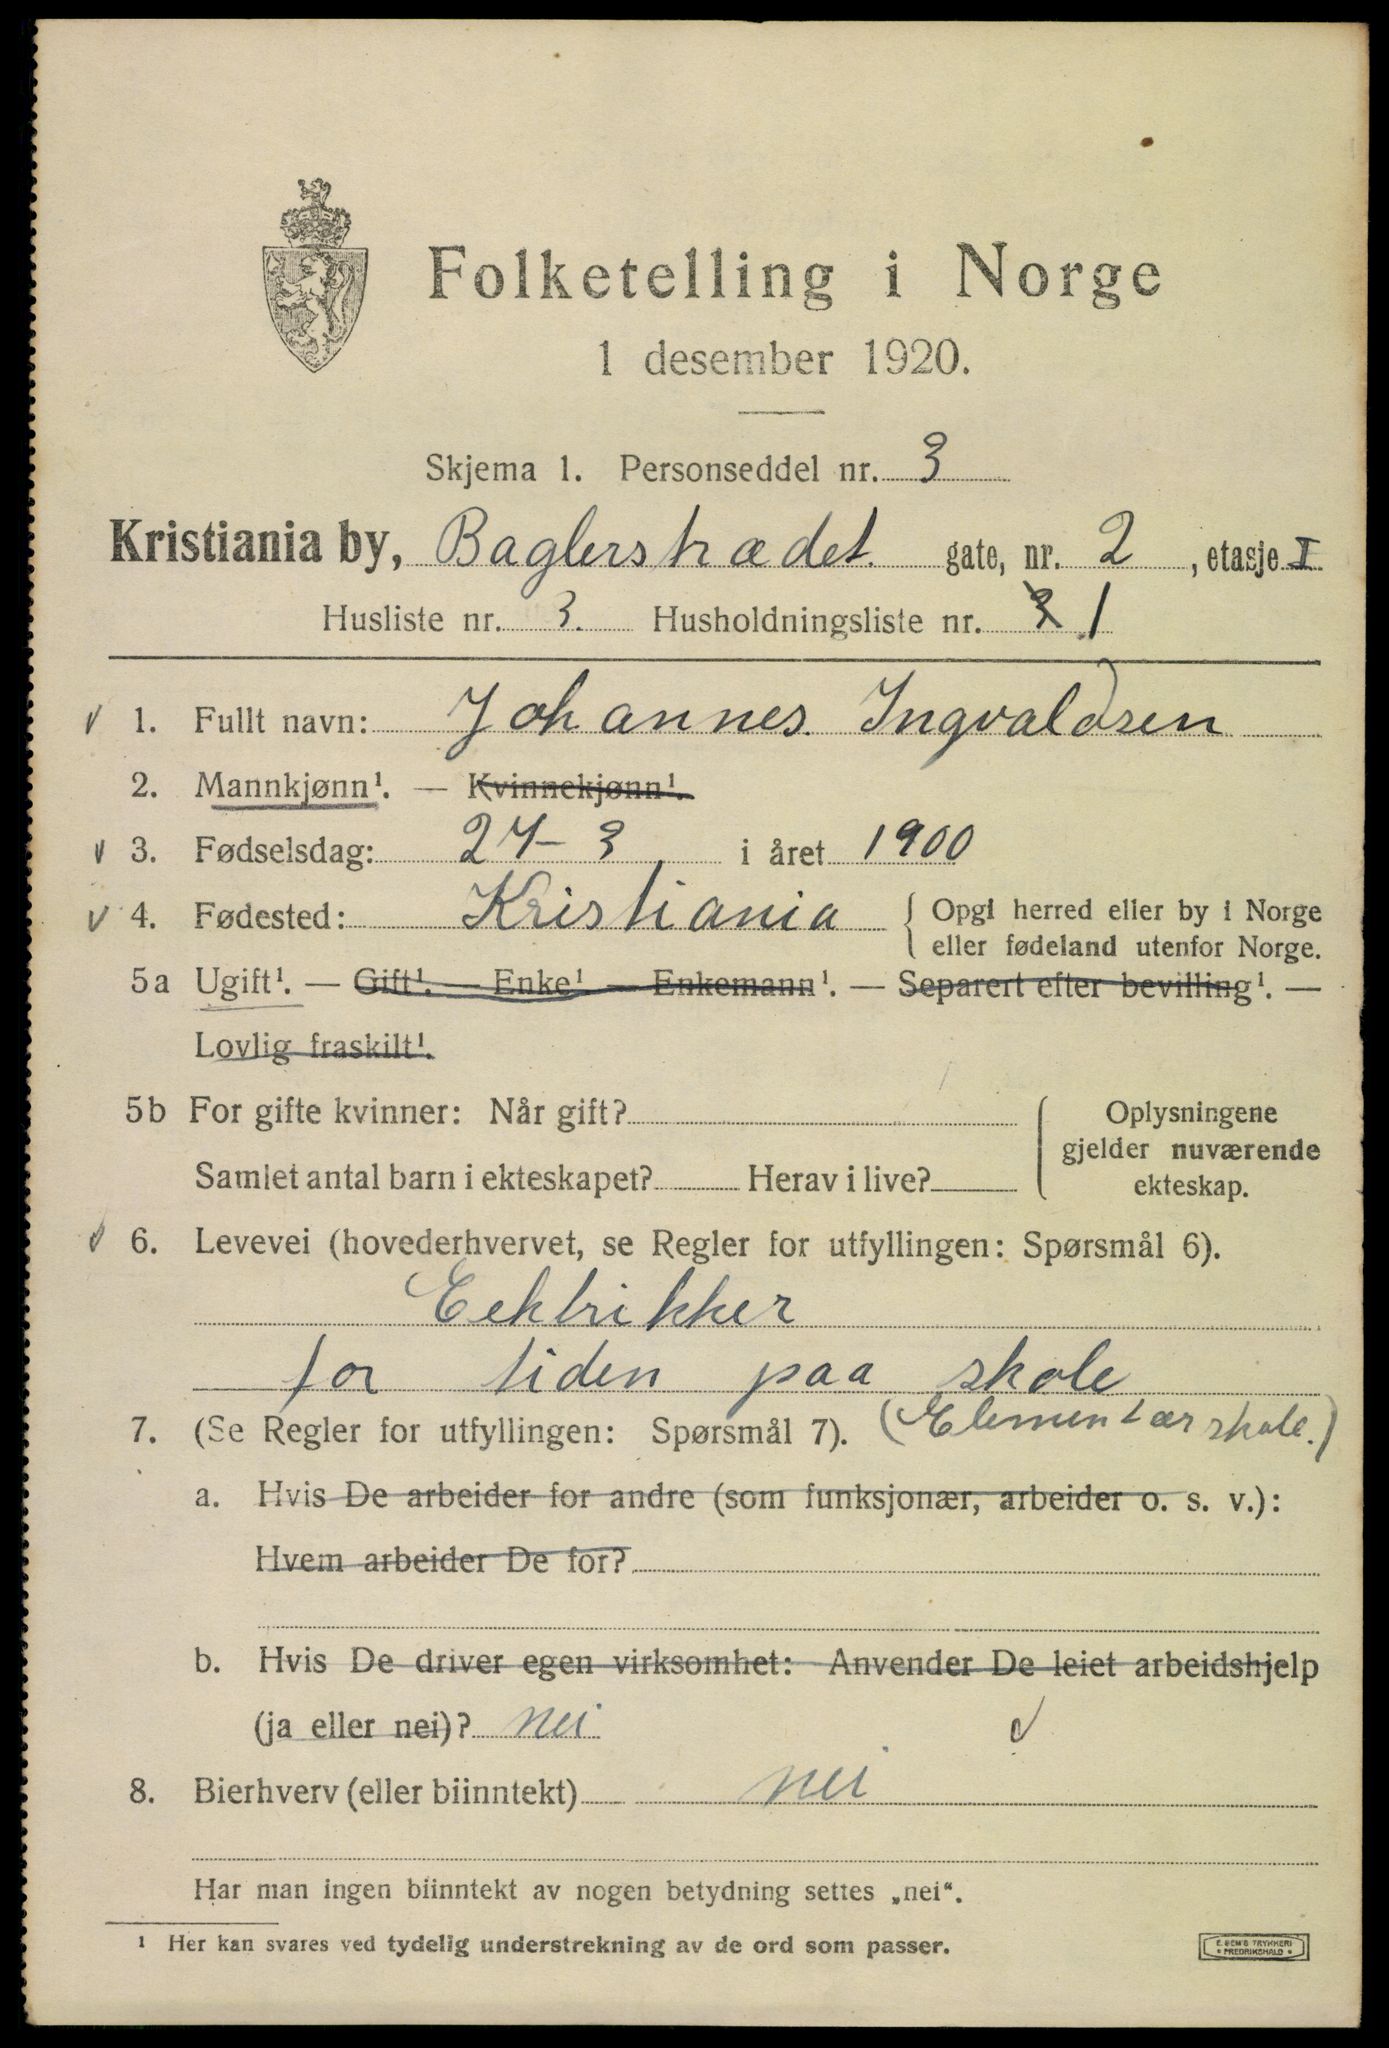 Folketelling i Norge
1 desember 1920.
Skjema 1. Personseddel nr. 3
Kristiania by, Baglerstrædet gate, nr. 2, etasje I
Husliste nr. 3. Husholdningsliste nr. 3 1
1. Fullt navn: Johannes Ingvaldsen
2. Mannkjønn¹. — Kvinnekjønn¹.
3. Fødselsdag: 24-3 i året 1900
4. Fødested: Kristiania { Opgi herred eller by i Norge
eller fødeland utenfor Norge.
5a Ugift¹. — Gift¹. — Enke¹ — Enkemann¹. — Separert efter bevilling¹. —
Lovlig fraskilt¹.
5b For gifte kvinner: Når gift? { Oplysningene
gjelder nuværende
Samlet antal barn i ekteskapet? Herav i live? ekteskap.
6. Levevei (hovederhvervet, se Regler for utfyllingen: Spørsmål 6).
Eektrikker
for tiden paa skole
7. (Se Regler for utfyllingen: Spørsmål 7). (Elementær skole.)
a. Hvis De arbeider for andre (som funksjonær, arbeider o. s. v.):
Hvem arbeider De for?
b. Hvis De driver egen virksomhet: Anvender De leiet arbeidshjelp
(ja eller nei)? nei
8. Bierhverv (eller biinntekt) nei
Har man ingen biinntekt av nogen betydning settes „nei“.
¹ Her kan svares ved tydelig understrekning av de ord som passer.
E. SEM'S TRYKKERI
• FREDRIKSHALD •